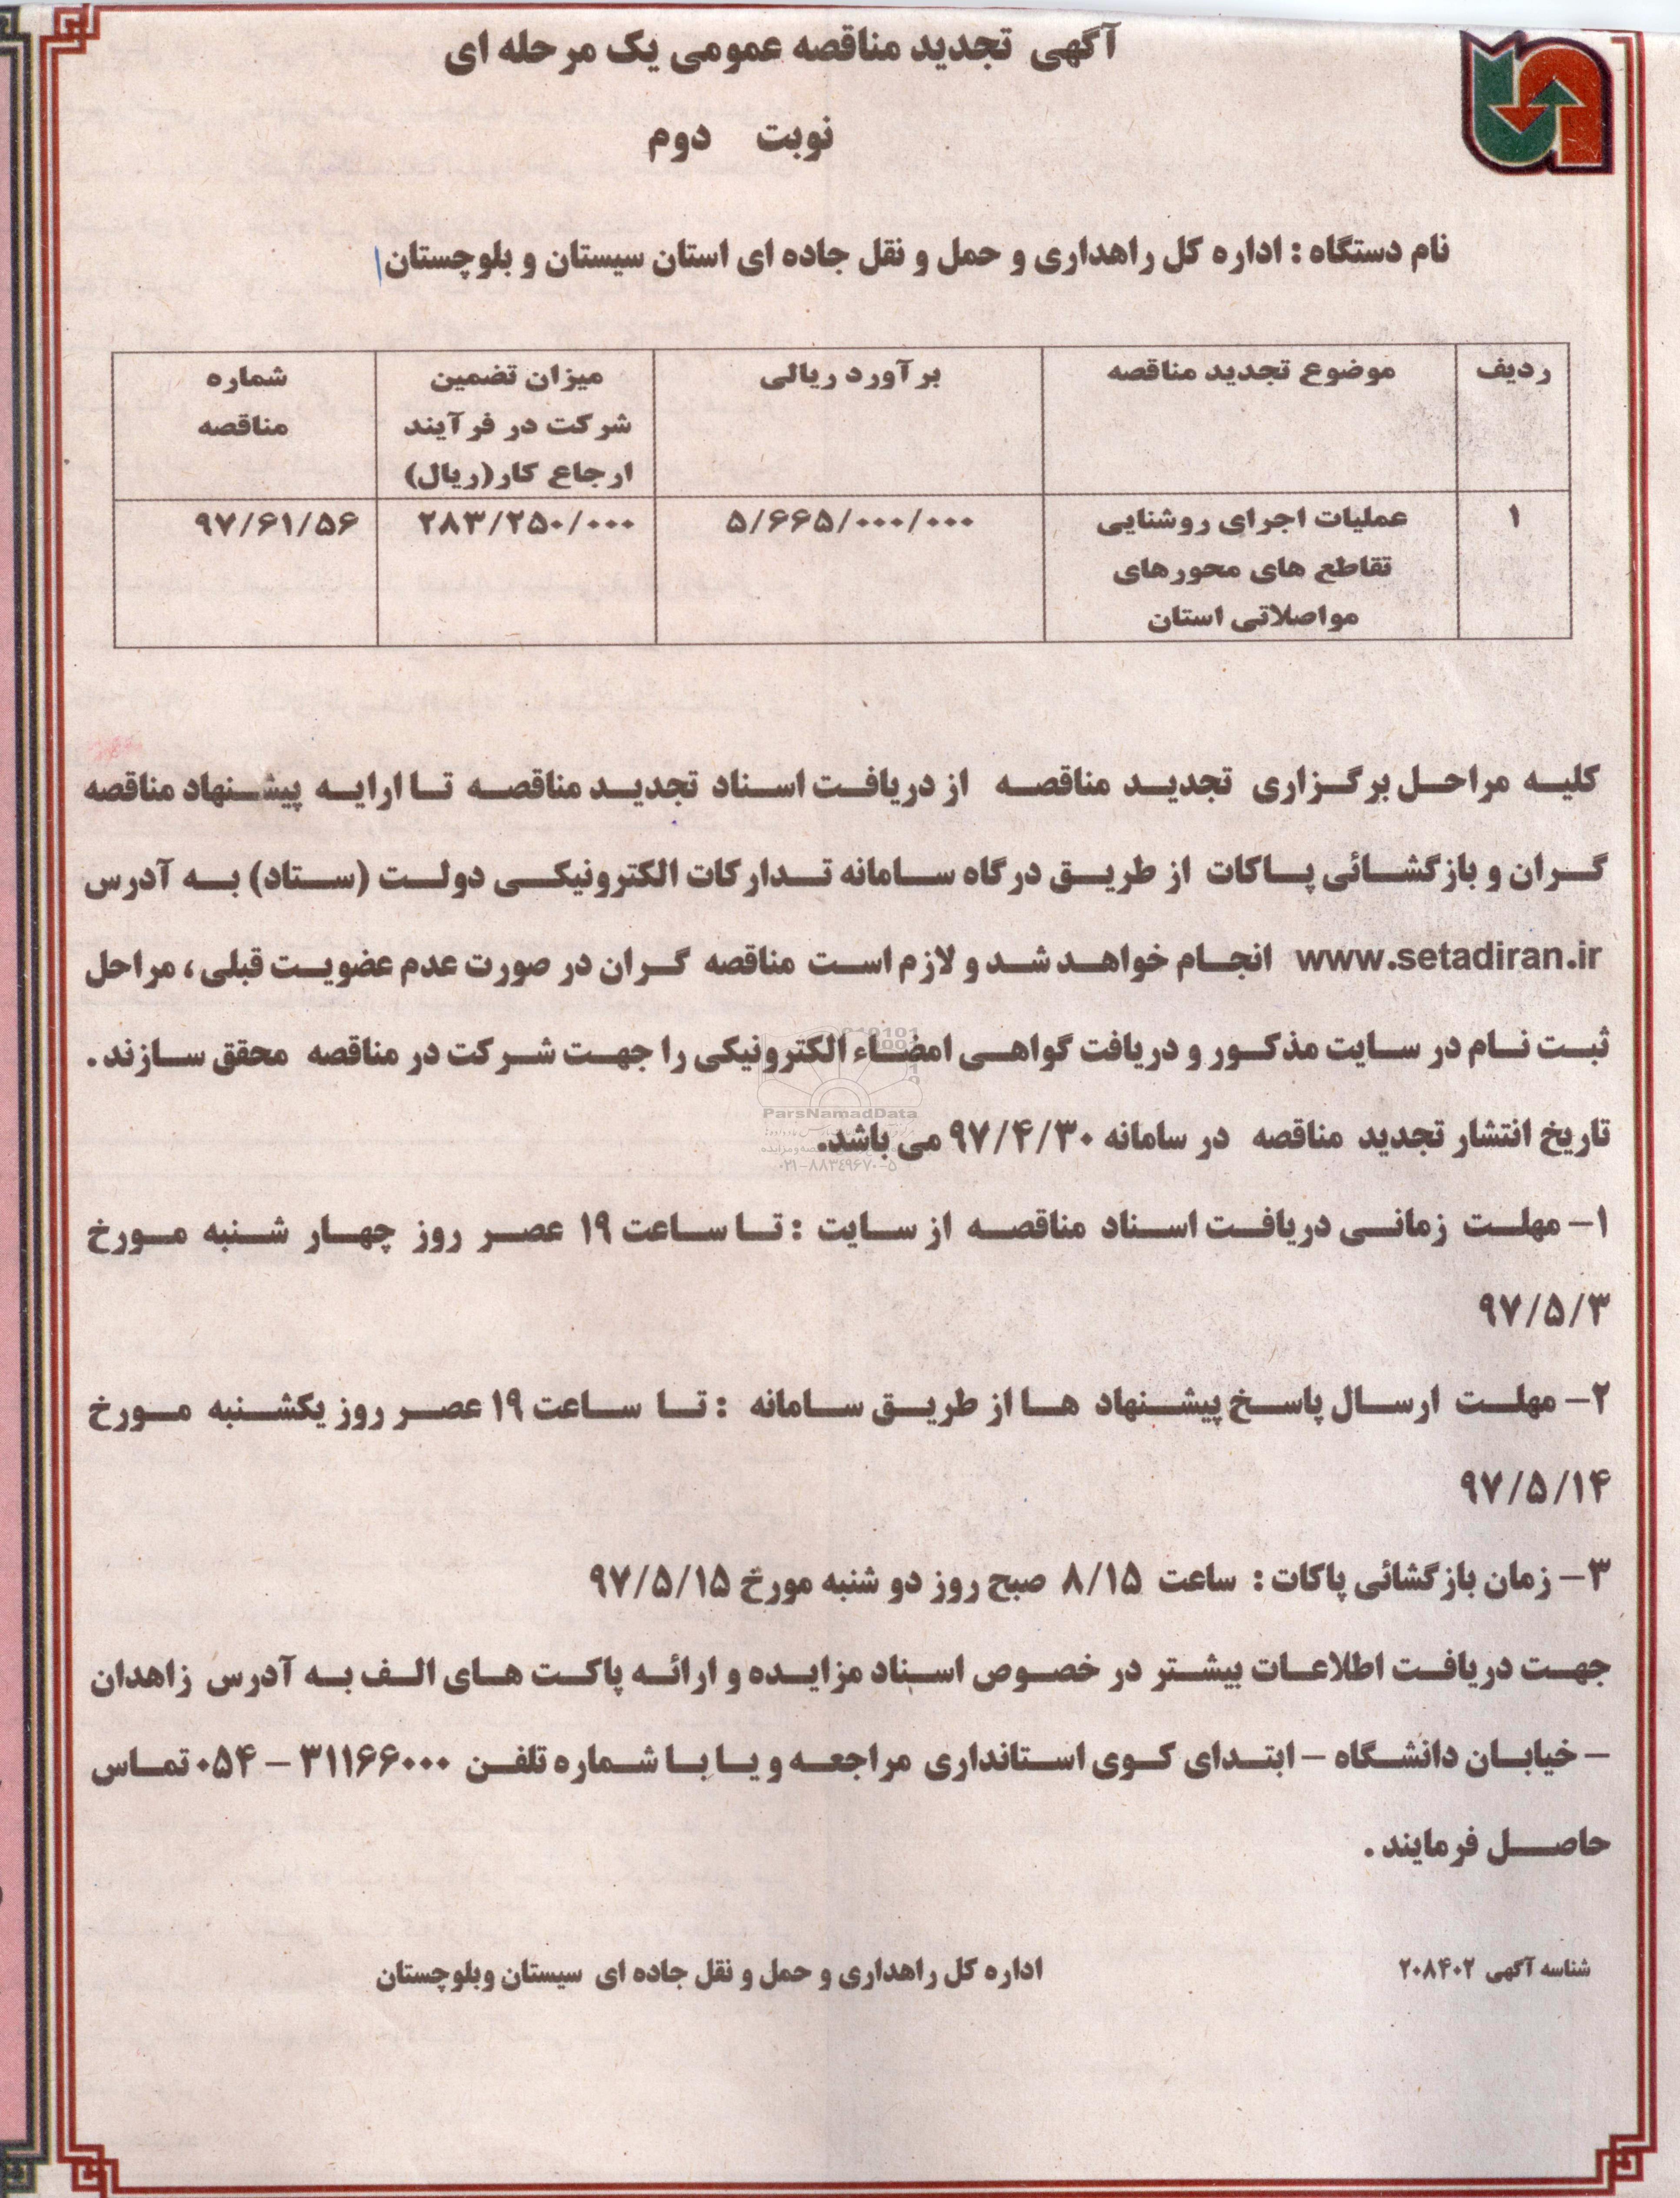 آگهی تجدید مناقصه عمومی یک مرحله ای
نوبت دوم
نام دستگاه : اداره کل راهداری و حمل و نقل جاده ای استان سیستان و بلوچستان
ردیف موضوع تجدید مناقصه برآورد ریالی میزان تضمین شرکت در فرآیند ارجاع کار(ریال) شماره مناقصه
۱ عملیات اجرای روشنایی تقاطع های محورهای مواصلاتی استان ۵/۶۶۵/۰۰۰/۰۰۰ ۲۸۳/۲۵۰/۰۰۰ ۹۷/۶۱/۵۶
کلیه مراحل برگزاری تجدید مناقصه از دریافت اسناد تجدید مناقصه تا ارایه پیشنهاد مناقصه
گران و بازگشائی پاکات از طریق درگاه سامانه تدارکات الکترونیکی دولت (ستاد) به آدرس
www.setadiran.ir انجام خواهد شد و لازم است مناقصه گران در صورت عدم عضویت قبلی ، مراحل
ثبت نام در سایت مذکور و دریافت گواهی امضاء الکترونیکی را جهت شرکت در مناقصه محقق سازند .
تاریخ انتشار تجدید مناقصه در سامانه ۹۷/۴/۳۰ می باشد.
۱- مهلت زمانی دریافت اسناد مناقصه از سایت : تا ساعت ۱۹ عصر روز چهار شنبه مورخ
۹۷/۵/۳
۲- مهلت ارسال پاسخ پیشنهاد ها از طریق سامانه : تا ساعت ۱۹ عصر روز یکشنبه مورخ
۹۷/۵/۱۴
۳- زمان بازگشائی پاکات : ساعت ۸/۱۵ صبح روز دو شنبه مورخ ۹۷/۵/۱۵
جهت دریافت اطلاعات بیشتر در خصوص اسناد مزایده و ارائه پاکت های الف به آدرس زاهدان
- خیابان دانشگاه - ابتدای کوی استانداری مراجعه و یا با شماره تلفن ۳۱۱۶۶۰۰۰ - ۰۵۴ تماس
حاصل فرمایند .
شناسه آگهی ۲۰۸۴۰۲
اداره کل راهداری و حمل و نقل جاده ای سیستان وبلوچستان
ParsNamadData
۰۲۱-۸۸۳۴۹۶۷۰-۵